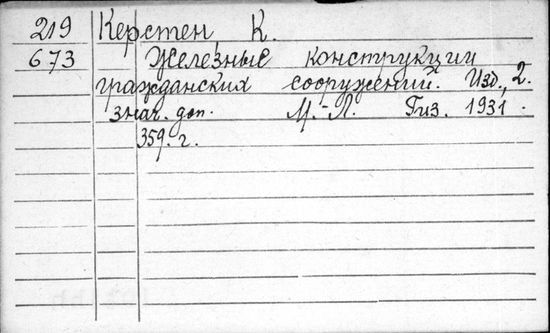 219 Керстен К.
673 Железные конструкции
гражданских сооружений. Изд., 2.
знач. доп. М.-Л. Гиз. 1931.
359. г.